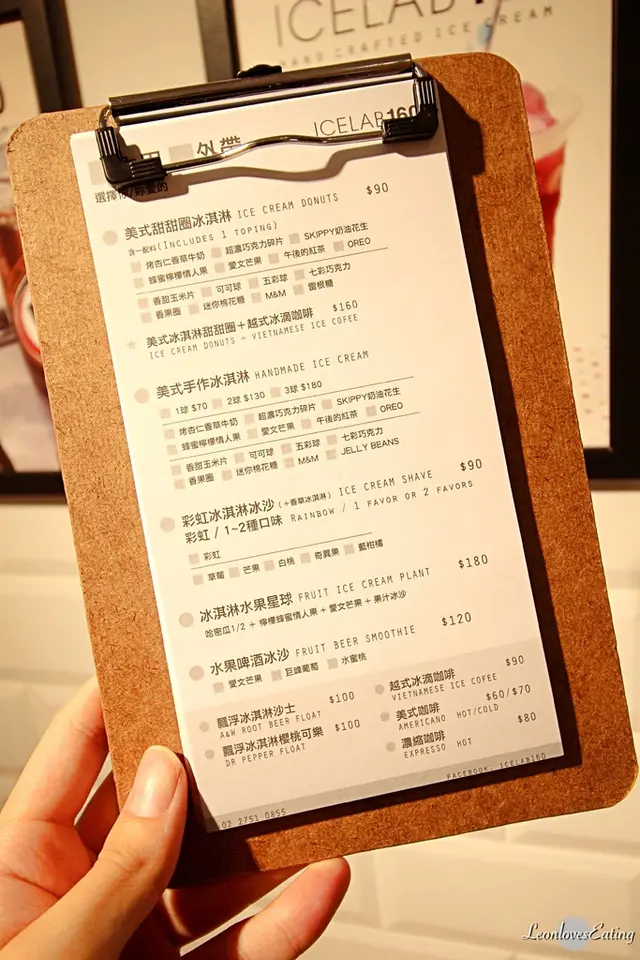 ICELAB
HAND CRAFTED ICE CREAM
ICELAB160
外帶
選擇你/妳愛的
美式甜甜圈冰淇淋 ICE CREAM DONUTS $90
含一配料(INCLUDES 1 TOPING)
烤杏仁香草牛奶 超濃巧克力碎片 SKIPPY奶油花生
蜂蜜檸檬情人果 愛文芒果 午後的紅茶 OREO
香甜玉米片 可可球 五彩球 七彩巧克力
香果圈 迷你棉花糖 M&M 雷根糖
美式冰淇淋甜甜圈+越式冰滴咖啡 $160
ICE CREAM DONUTS + VIETNAMESE ICE COFEE
美式手作冰淇淋 HANDMADE ICE CREAM
1球 $70 2球 $130 3球 $180
烤杏仁香草牛奶 超濃巧克力碎片 SKIPPY奶油花生
蜂蜜檸檬情人果 愛文芒果 午後的紅茶 OREO
香甜玉米片 可可球 五彩球 七彩巧克力
香果圈 迷你棉花糖 M&M JELLY BEANS
彩虹冰淇淋冰沙 (+香草冰淇淋) ICE CREAM SHAVE $90
彩虹 / 1~2種口味 RAINBOW / 1 FAVOR OR 2 FAVORS
彩虹
草莓 芒果 白桃 奇異果 藍柑橘
冰淇淋水果星球 FRUIT ICE CREAM PLANT $180
哈密瓜1/2 + 檸檬蜂蜜情人果 + 愛文芒果 + 果汁冰沙
水果啤酒冰沙 FRUIT BEER SMOOTHIE $120
愛文芒果 巨峰葡萄 水蜜桃
飄浮冰淇淋沙士 $100
A&W ROOT BEER FLOAT
飄浮冰淇淋櫻桃可樂 $100
DR PEPPER FLOAT
越式冰滴咖啡 $90
VIETNAMESE ICE COFEE
美式咖啡 $60/$70
AMERICANO HOT/COLD
濃縮咖啡 $80
EXPRESSO HOT
FACEBOOK: ICELAB160
02 2751 0855
LeonlovesEating